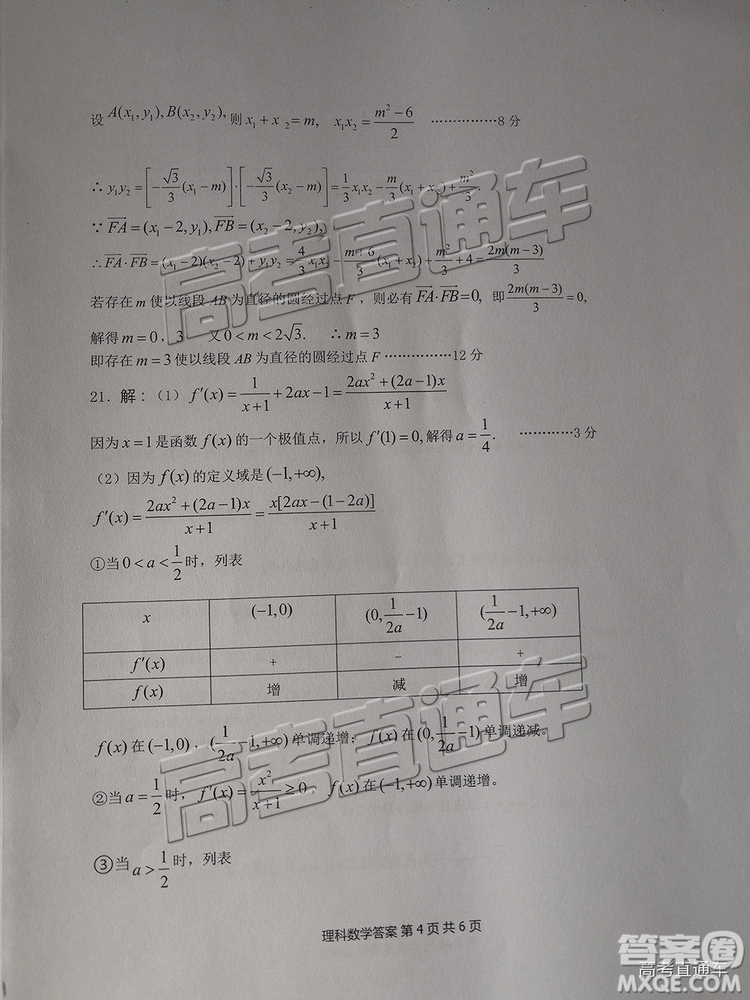 设 A(x₁, y₁), B(x₂, y₂), 则 x₁ + x ₂ = m, x₁x₂ = (m² − 6)/2 ……………8 分
∴ y₁y₂ = [−(√3/3)(x₁ − m)]·[−(√3/3)(x₂ − m)] = (1/3)x₁x₂ − (m/3)(x₁ + x₂) + m²/3.
∵ FA = (x₁ − 2, y₁), FB = (x₂ − 2, y₂),
∴ FA·FB = (x₁ − 2)(x₂ − 2) + y₁y₂ = (4/3)x₁x₂ − ((m+6)/3)(x₁ + x₂) + m²/3 + 4 = 2m(m−3)/3
若存在 m 使以线段 AB 为直径的圆经过点 F ，则必有 FA·FB = 0, 即 2m(m−3)/3 = 0,
解得 m = 0，3 又 0 < m < 2√3. ∴ m = 3
即存在 m = 3 使以线段 AB 为直径的圆经过点 F ……………12 分
21．解：（1） f′(x) = 1/(x+1) + 2ax − 1 = (2ax² + (2a−1)x)/(x+1)
因为 x = 1 是函数 f(x) 的一个极值点，所以 f′(1) = 0, 解得 a = 1/4. …………3 分
（2）因为 f(x) 的定义域是 (−1, +∞),
f′(x) = (2ax² + (2a−1)x)/(x+1) = x[2ax − (1−2a)]/(x+1)
①当 0 < a < 1/2 时，列表
x (−1, 0) (0, 1/2a − 1) (1/2a − 1, +∞)
f′(x) + − +
f(x) 增 减 增
f(x) 在 (−1, 0)，(1/2a − 1, +∞) 单调递增；f(x) 在 (0, 1/2a − 1) 单调递减。
②当 a = 1/2 时，f′(x) = x²/(x+1) ≥ 0，f(x) 在 (−1, +∞) 单调递增。
③当 a > 1/2 时，列表
理科数学答案 第 4 页 共 6 页
高考直通车
高考直通车
答案卷
高考直通车
MXQE.COM